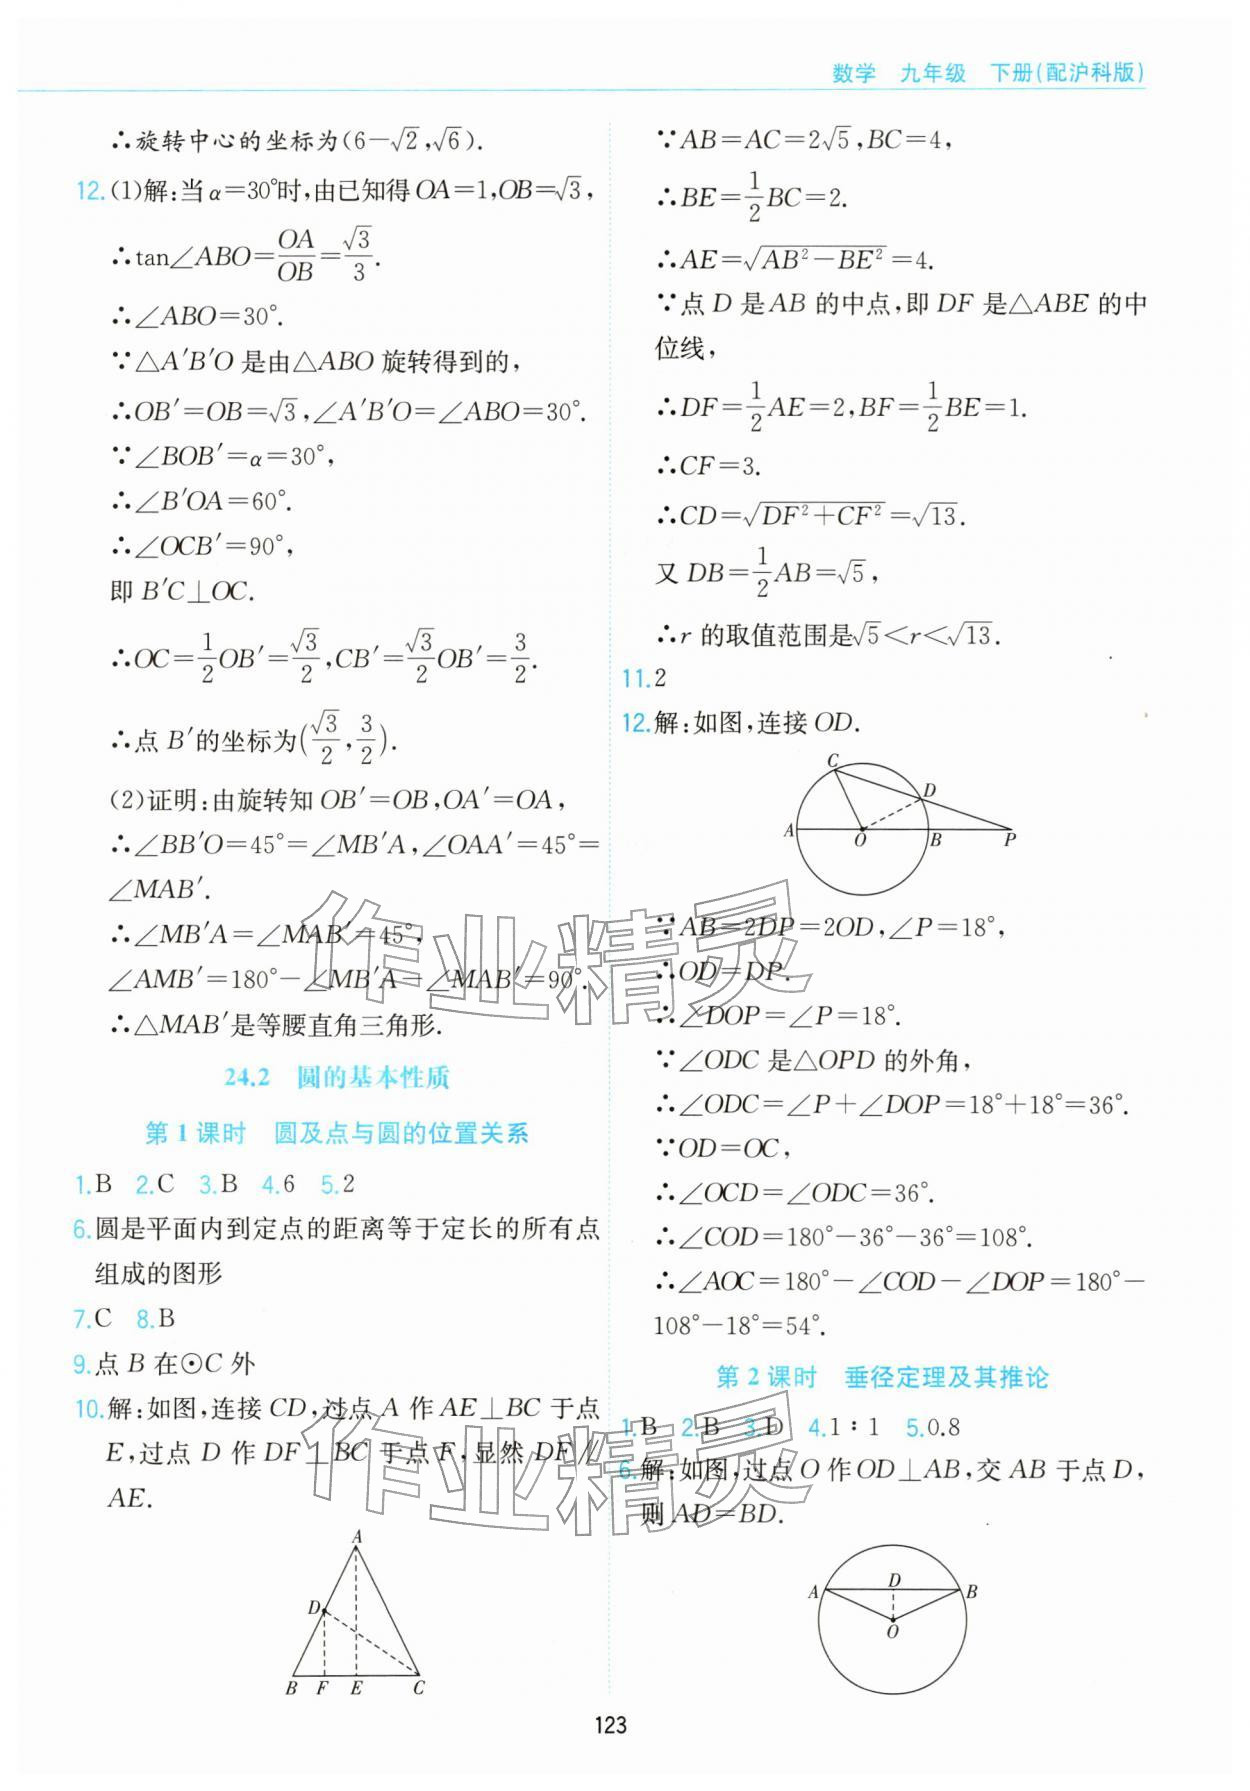 数学 九年级 下册(配沪科版)
∴旋转中心的坐标为(6－√2,√6).
12.(1)解:当α=30°时,由已知得OA=1,OB=√3,
∴tan∠ABO=OA/OB=√3/3.
∴∠ABO=30°.
∵△A′B′O是由△ABO旋转得到的,
∴OB′=OB=√3,∠A′B′O=∠ABO=30°.
∵∠BOB′=α=30°,
∴∠B′OA=60°.
∴∠OCB′=90°,
即B′C⊥OC.
∴OC=1/2OB′=√3/2,CB′=√3/2OB′=3/2.
∴点B′的坐标为(√3/2,3/2).
(2)证明:由旋转知OB′=OB,OA′=OA,
∴∠BB′O=45°=∠MB′A,∠OAA′=45°=
∠MAB′.
∴∠MB′A=∠MAB′=45°,
∠AMB′=180°－∠MB′A－∠MAB′=90°.
∴△MAB′是等腰直角三角形.
24.2 圆的基本性质
第1课时 圆及点与圆的位置关系
1.B 2.C 3.B 4.6 5.2
6.圆是平面内到定点的距离等于定长的所有点
组成的图形
7.C 8.B
9.点B在⊙C外
10.解:如图,连接CD,过点A作AE⊥BC于点
E,过点D作DF⊥BC于点F,显然DF∥
AE.
A
D
B F E C
∵AB=AC=2√5,BC=4,
∴BE=1/2BC=2.
∴AE=√(AB²－BE²)=4.
∵点D是AB的中点,即DF是△ABE的中
位线,
∴DF=1/2AE=2,BF=1/2BE=1.
∴CF=3.
∴CD=√(DF²+CF²)=√13.
又DB=1/2AB=√5,
∴r的取值范围是√5<r<√13.
11.2
12.解:如图,连接OD.
C
D
A O B P
∵AB=2DP=2OD,∠P=18°,
∴OD=DP.
∴∠DOP=∠P=18°.
∵∠ODC是△OPD的外角,
∴∠ODC=∠P+∠DOP=18°+18°=36°.
∵OD=OC,
∴∠OCD=∠ODC=36°.
∴∠COD=180°－36°－36°=108°.
∴∠AOC=180°－∠COD－∠DOP=180°－
108°－18°=54°.
第2课时 垂径定理及其推论
1.B 2.B 3.D 4.1∶1 5.0.8
6.解:如图,过点O作OD⊥AB,交AB于点D,
则AD=BD.
A D B
O
作业精灵
作业精灵
123